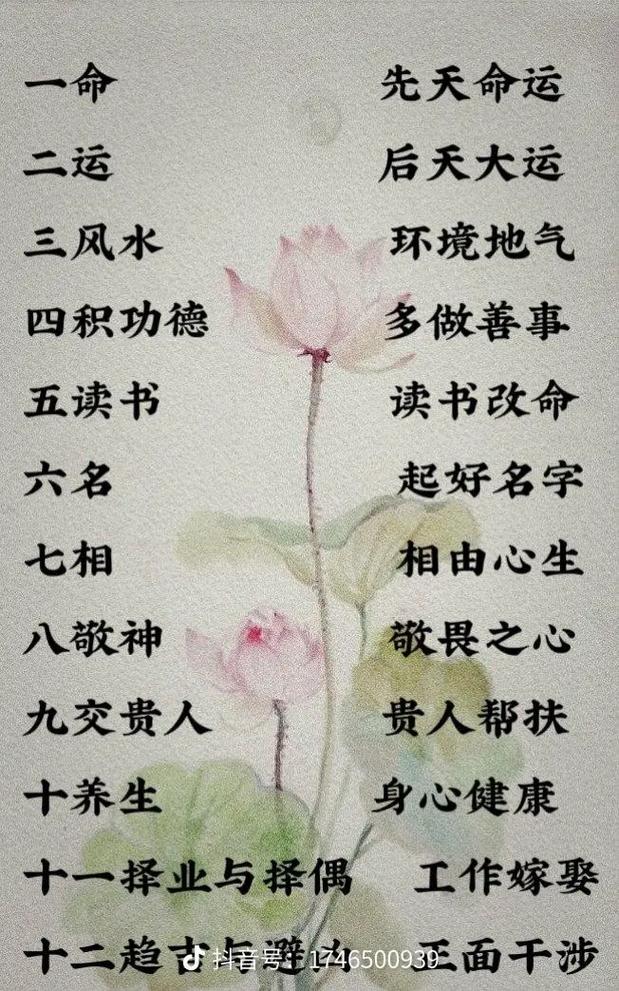 一命 先天命运
二运 后天大运
三风水 环境地气
四积功德 多做善事
五读书 读书改命
六名 起好名字
七相 相由心生
八敬神 敬畏之心
九交贵人 贵人帮扶
十养生 身心健康
十一择业与择偶 工作嫁娶
十二趋吉与避凶 正面干涉
抖音号：1746500939